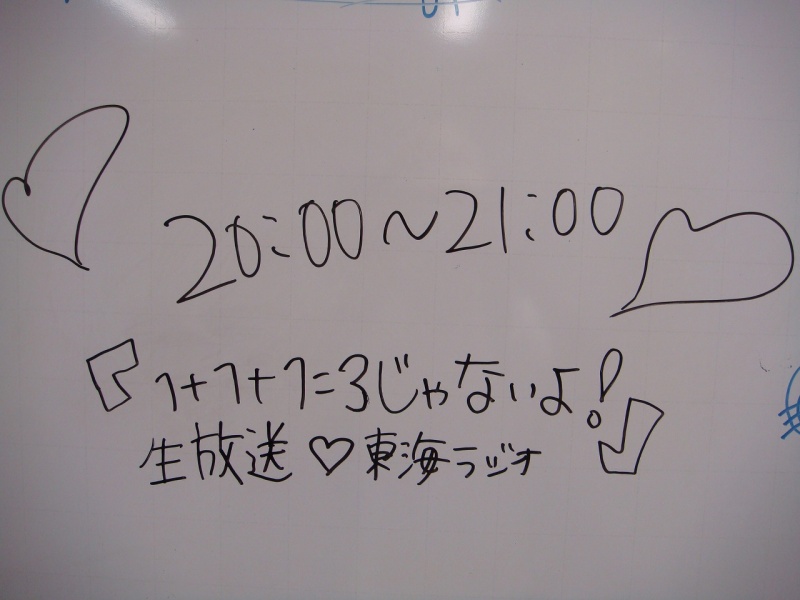 20:00～21:00
『1+1+1=3じゃないよ!
生放送♡東海ラジオ』